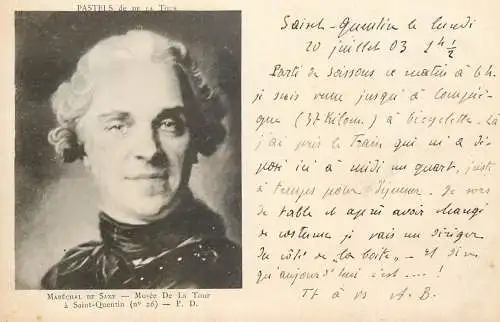 PASTELS de DE LA TOUR
MARÉCHAL DE SAXE — MUSÉE DE LA TOUR
à SAINT-QUENTIN (n° 26) — F. D.
Saint-Quentin le lundi
20 juillet 03 1 h ½
Parti de Soissons ce matin à 6 h.
je suis venu jusqu'à Compiè-
gne (37 Kilom.) à bicyclette. Là
j'ai pris le train qui m'a dé-
posé ici à midi un quart, juste
à temps pour déjeuner. Je sors
de table et après avoir changé
de costume je vais me diriger
du côté de „la boite" – Et dire
qu'aujourd'hui c'est ..... !
Tt à vs A. B.